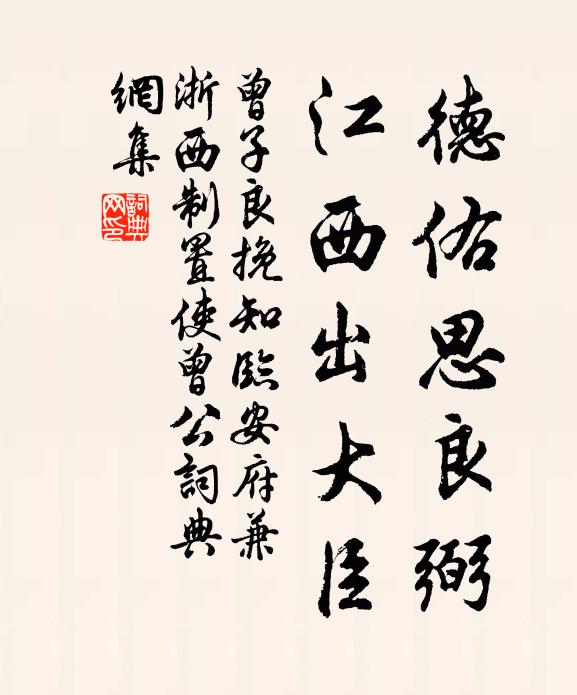 德佑思良弼
江西出大臣
曾子良挽知臨安府兼
浙西制置使曾公詞典
網集
詞典
网印